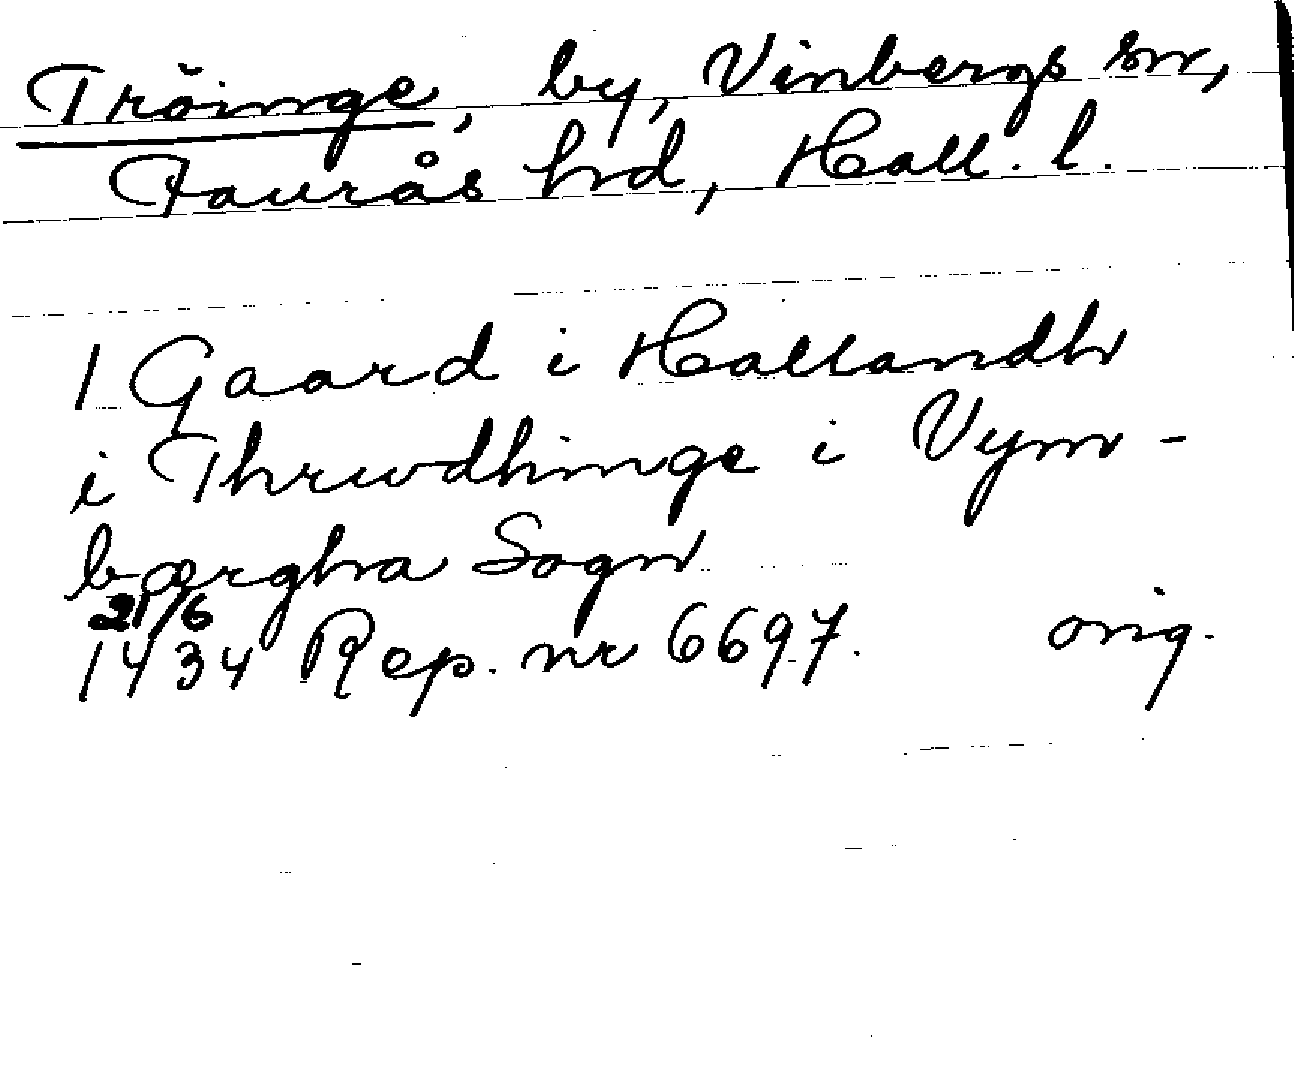 Tröinge, by, Vinbergs sn,
Faurås hrd, Hall. l.
1 Gaard i Hallandh
i Thrwdhinge i Vym-
bærghra Sogn
21/6
1434 Rep. nr 6697. orig.